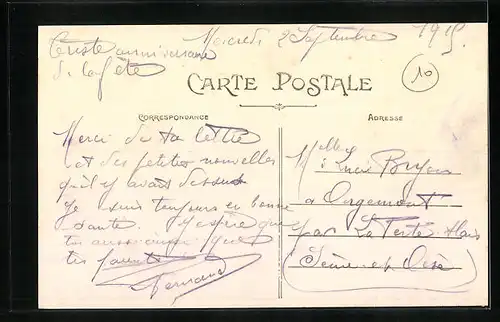 Mercredi 2 Septembre 1915.
triste anniversaire
de la fête
10
CARTE POSTALE
CORRESPONDANCE
ADRESSE
Merci de ta lettre
et des petites nouvelles
qu'il y avait dessus
Je suis toujours en bonne
santé. J'espère que
toi aussi ainsi que
tes parents
Fernand
Melle Lucie
a Orgemont
par La Ferté-Alais
(Seine-et-Oise)